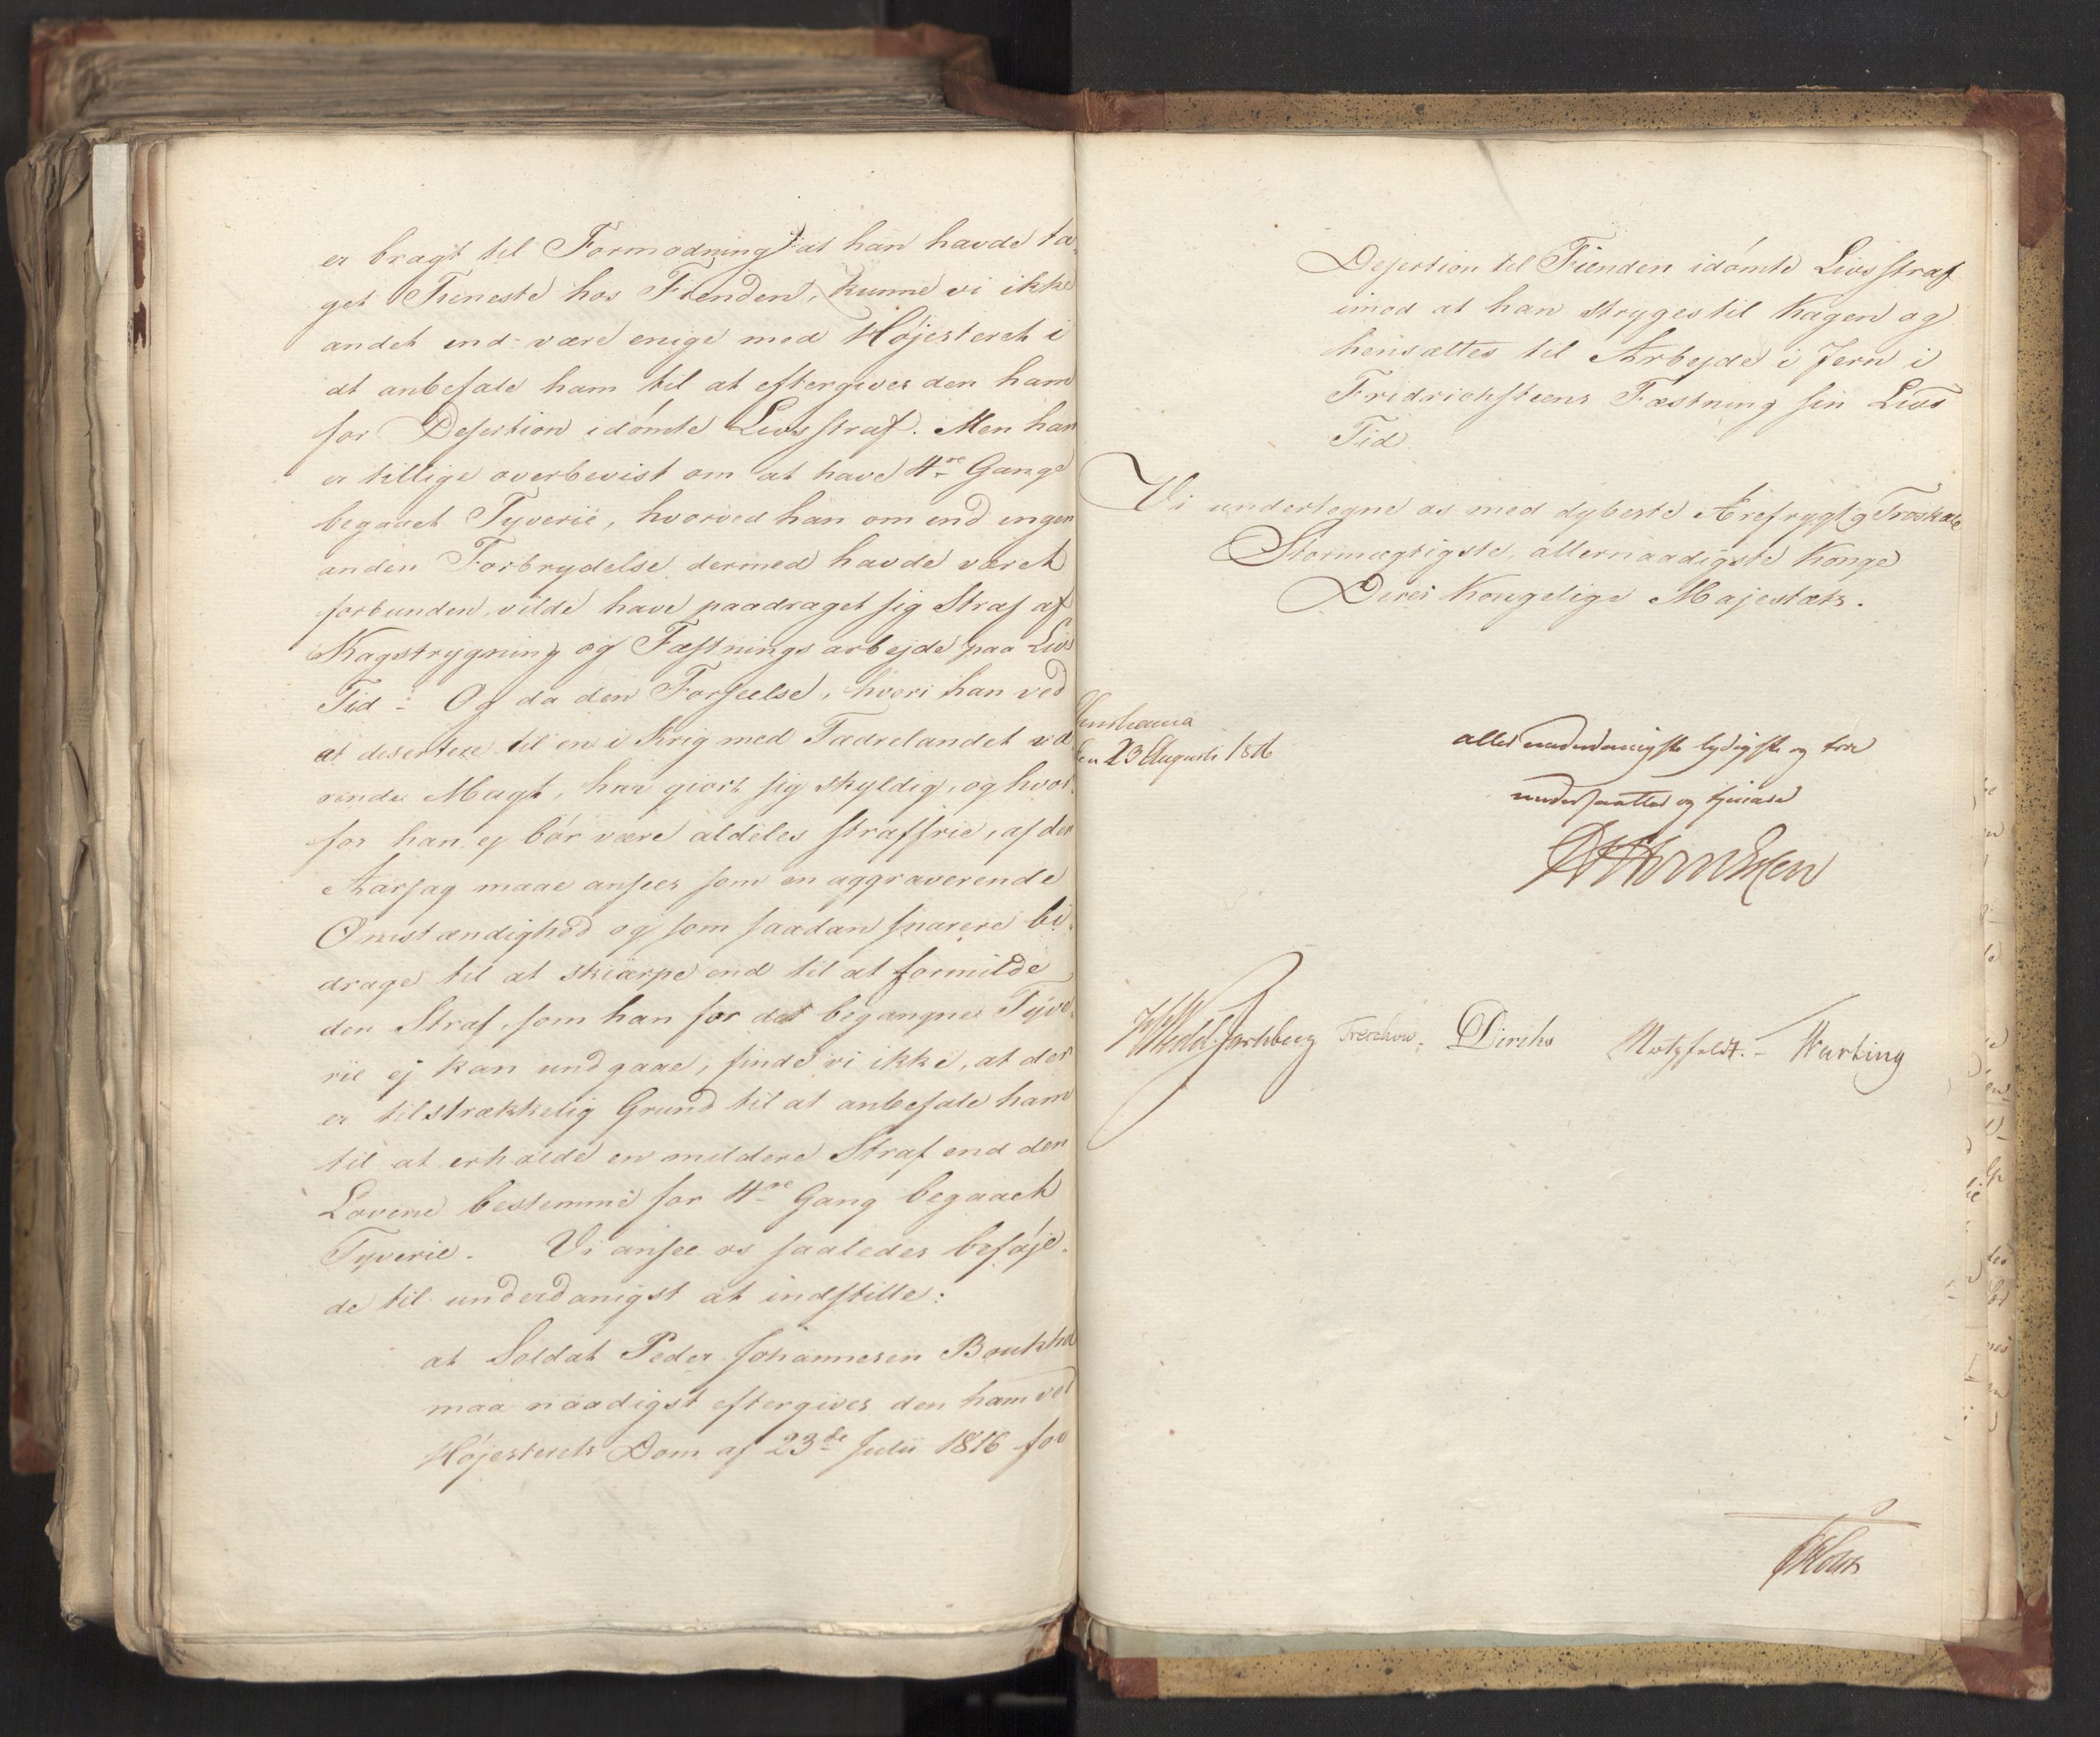 er bragt til Formodning at han havde ta-
get Tieneste hos Fienden, kunne vi ikke
andet end være enige med Højesteret i
at anbefale ham til at eftergives den ham
for Desertion idømte Livsstraf. Men han
er tillige overbevist om at have 4re Gange
begaaet Tyverie, hvorved han om end ingen
anden Forbrydelse dermed havde været
forbunden, vilde have paadraget sig Straf af
Kagstrygning og Fæstningsarbejde paa Livs
Tid - Og da den Forseelse, hvori han ved
at desertere til en i Krig med Fædrelandet væ-
rende Magt, har giort sig skyldig, og hvor-
for han ej bør være aldeles straffrie, af den
Aarsag maae ansees som en aggraverende
Omstændighed og som saadan snarere bi-
drage til at skiærpe end til at formilde
den Straf, som han for det begangne Tyve-
rie ej kan undgaae, finde vi ikke, at der
er tilstrækkelig Grund til at anbefale ham
til at erholde en mildere Straf end den
Lovene bestemme for 4re Gang begaaet
Tyverie. Vi ansee os saaledes beføje-
de til underdanigst at indstille:
at Soldat Peder Johannesen
maa naadigst eftergives den ham ved
Højesterets Dom af 23de Julii 1816 for
Desertion til Fienden idømte Livsstraf
imod at han stryges til Kagen og
hensættes til Arbejde i Jern i
Fridrichsteens Fæstning sin Livs
Tid
Vi undertegne os med dybeste Ærefrygt og Troskab
Stormægtigste, allernaadigste Konge
Deres Kongelige Majestæts.
Christiania
den 23 Augusti 1816
allerunderdanigste lydigste og troe
undersaatter og tjenere
Treschow. Diriks Motzfeldt. -